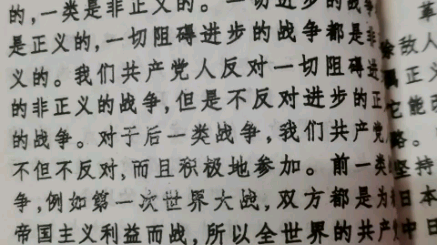 的,一类是非正义的。一切进步的战争
是正义的,一切阻碍进步的战争都是非
义的。我们共产党人反对一切阻碍进
的非正义的战争,但是不反对进步的正
的战争。对于后一类战争,我们共产党
不但不反对,而且积极地参加。前一类
争,例如第一次世界大战,双方都是为
帝国主义利益而战,所以全世界的共产
革
敌人
正义
它能
略。
坚持
日本
中日